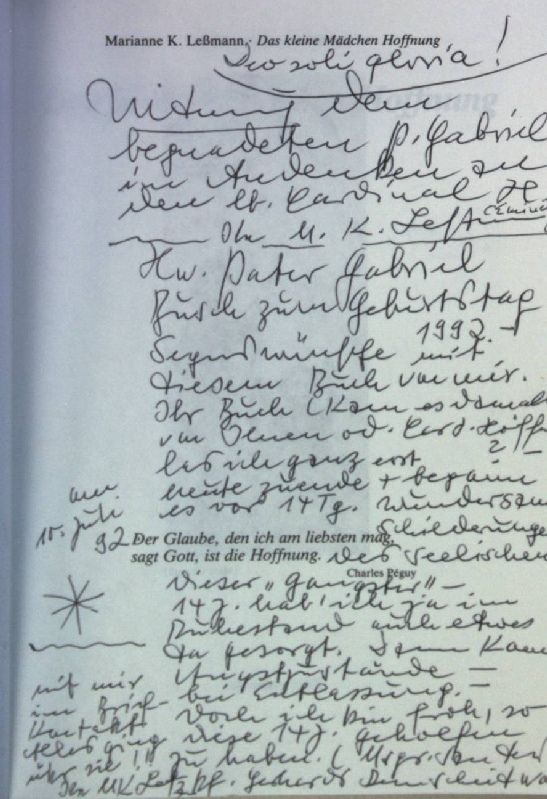 Marianne K. Leßmann · Das kleine Mädchen Hoffnung
Deo soli gloria!
Widmung dem
begnadeten P. Gabriel
im Andenken an
den lb. Cardinal
Ihr M. K. Leßmann
Hw. Pater Gabriel
Busch zum Geburtstag
1992.
Segenswünsche mit
diesem Buch von mir.
Ihr Buch (kam es damals
von Ihnen od. Card. Höff
las ich ganz erst
heute zuende + begann
es vor 14 Tg. wundersam
am
10. Juli
92
Schilderunge
Der Glaube, den ich am liebsten mag,
sagt Gott, ist die Hoffnung.
des seelischen
Charles Péguy
dieser "Gangster" –
14 J. hab' ich ja im
Ruhestand auch etwas
da gesorgt. Dann kam
Angstzustände –
bei Entlassung. –
Doch ich bin froh, so
diese 14 J. geholfen
zu haben. (
mit mir
im Brief-
Kontakt
alles ging
über sie!!"
Ihr MK Leß